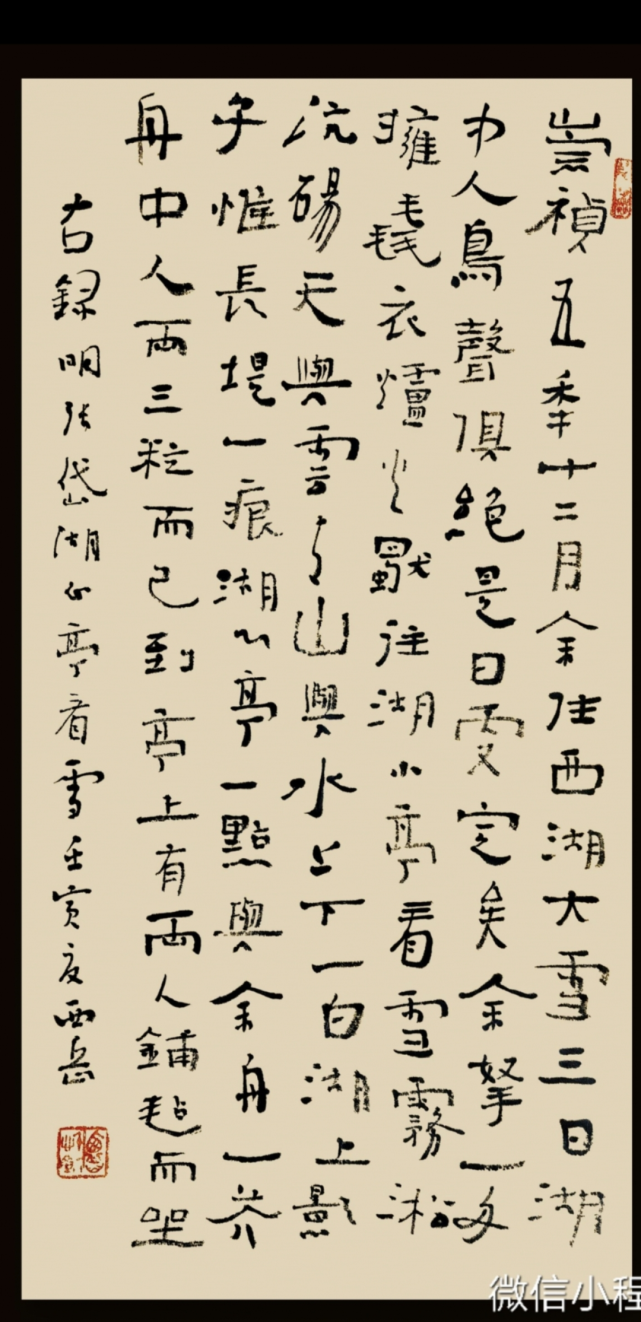 崇禎五秊十二月余住西湖大雪三日湖
中人鳥聲俱絕是日更定矣余拏一舟
擁毳衣爐火獨往湖心亭看雪霧淞
沆碭天與雲与山與水上下一白湖上影
子惟長堤一痕湖心亭一點與余舟一芥
舟中人兩三粒而已到亭上有兩人鋪氈而坐
右録明张岱湖心亭看雪壬寅夏西岳
微信小程